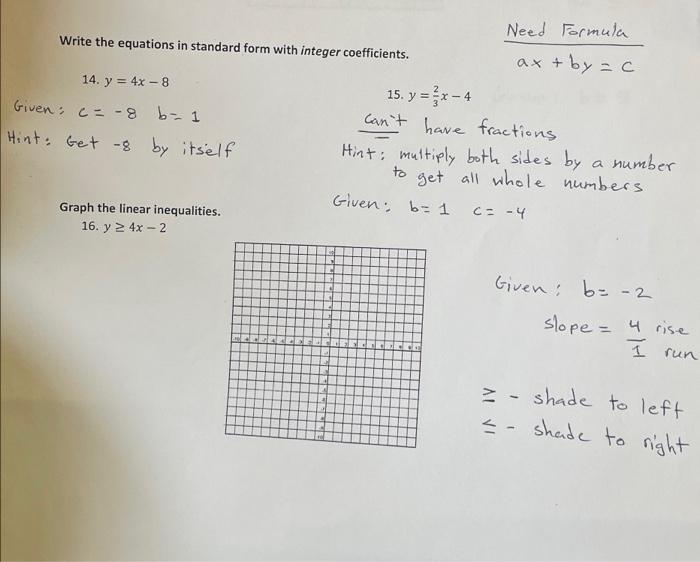 Need Formula
ax + by = c
Write the equations in standard form with integer coefficients.
14. y = 4x − 8
Given: c = -8 b = 1
Hint: Get -8 by itself
15. y = 2/3 x − 4
Can't have fractions
Hint: multiply both sides by a number
to get all whole numbers
Given: b = 1 c = -4
Graph the linear inequalities.
16. y ≥ 4x − 2
Given: b = -2
slope = 4 rise
1 run
≥ - shade to left
≤ - shade to right